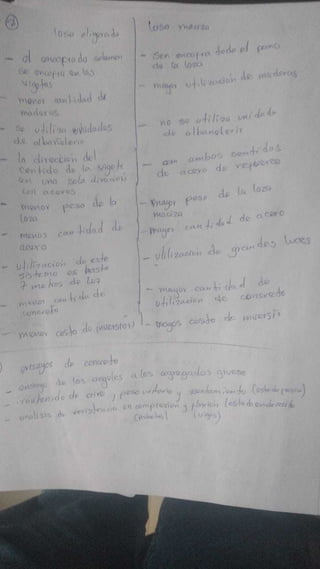 losa aligerada
- el encofrado solamen
se encofra en las
vigetas
- menor cantidad de
maderas
- se utiliza unidades
de albañileria
- la direccion del
sentido de la vigeta
en una sola direccion
con aceros
- menor peso de la
losa
- menos cantidad de
acero
- utilizacion de este
sistema es hasta
7 metros de luz
- menor cantidad de
concreto
- menor costo de inversion
losa maciza
- sen encofra todo el paño
de la loza
- mayor utilizacion de maderas
- no se utiliza unidad
de albañileria
- con ambos sentidos
de acero de refuerzo
- mayor peso de la loza
maciza
- mayor cantidad de acero
- utilizacion de grandes luces
- mayor cantidad de
utilizacion de concreto
- mayor costo de inversion
ensayos de concreto
- ensayo de los angeles a los agregados grueso
- contenido de , peso unitario y asentamiento (estado fresco)
- analisis de resistencia en compresion y flexion (estado endurecido
(probetas) (vigas)